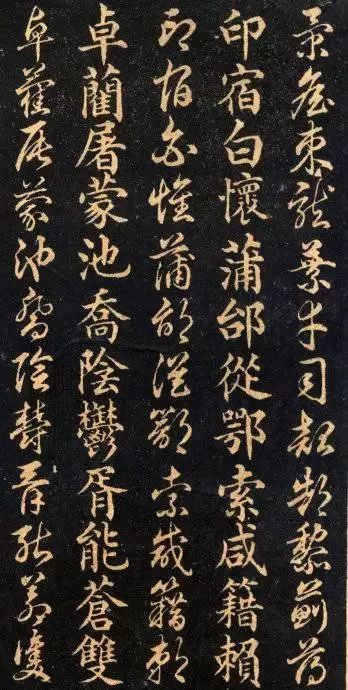 景詹束龍葉幸司韶郜黎薊薄
印宿白懷蒲邰從鄂索咸籍賴
印宿白懷蒲邰從鄂索咸籍賴
卓藺屠蒙池喬陰鬱胥能蒼雙
卓藺屠蒙池喬陰鬱胥能蒼雙